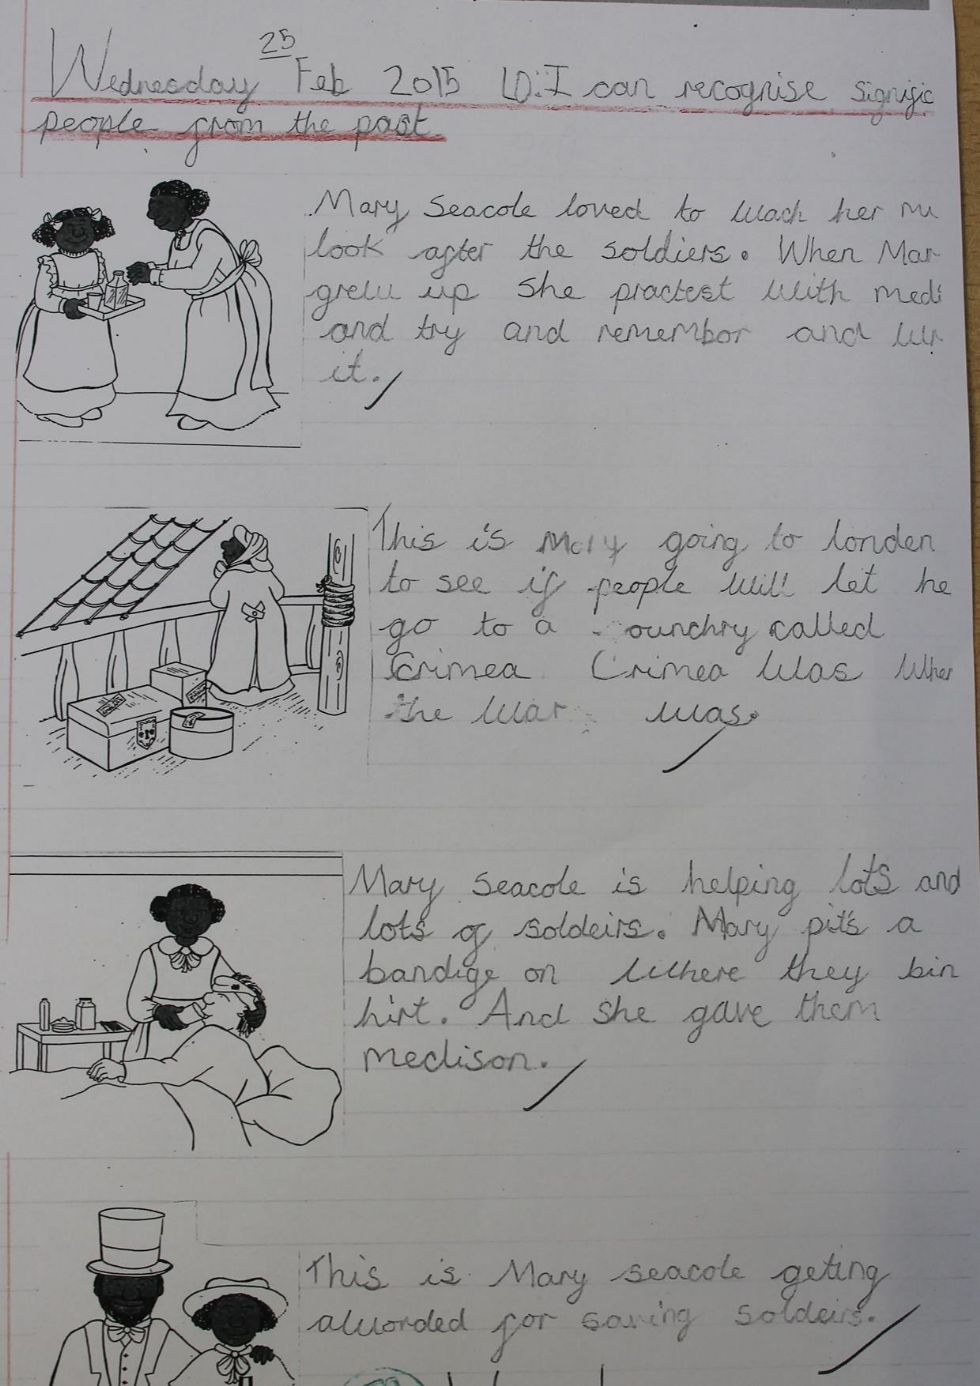 25
Wednesday Feb 2015 LO: I can recognise signific
people from the past
Mary Seacole loved to wach her mu
look after the soldiers. When Mar
grew up she practest with medi
and try and remembor and wr
it.
This is Mary going to londen
to see if people will let he
go to a ounchry called
Crimea Crimea was wher
the war was.
Mary Seacole is helping lots and
lots of soldeirs. Mary pits a
bandige on where they bin
hirt. And she gave them
medison.
This is Mary seacole geting
aworded for saving soldeirs.